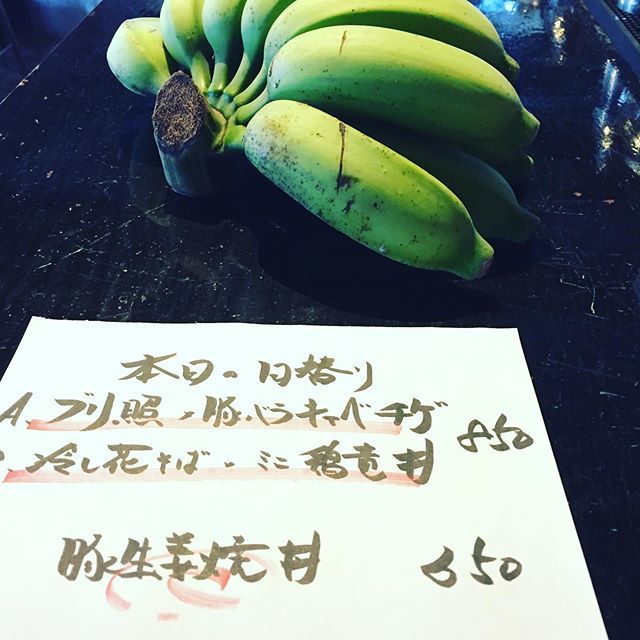 本日の日替り
A、ブリ照ノ豚バラキャベチゲ 850
、冷し花そば、ミニ鶏竜丼
豚生姜焼丼 650